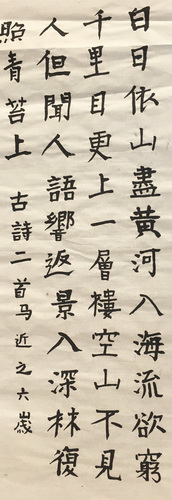 白日依山盡黃河入海流欲窮
千里目更上一層樓空山不見
人但聞人語響返景入深林復
照青苔上 古詩二首马近之六歲